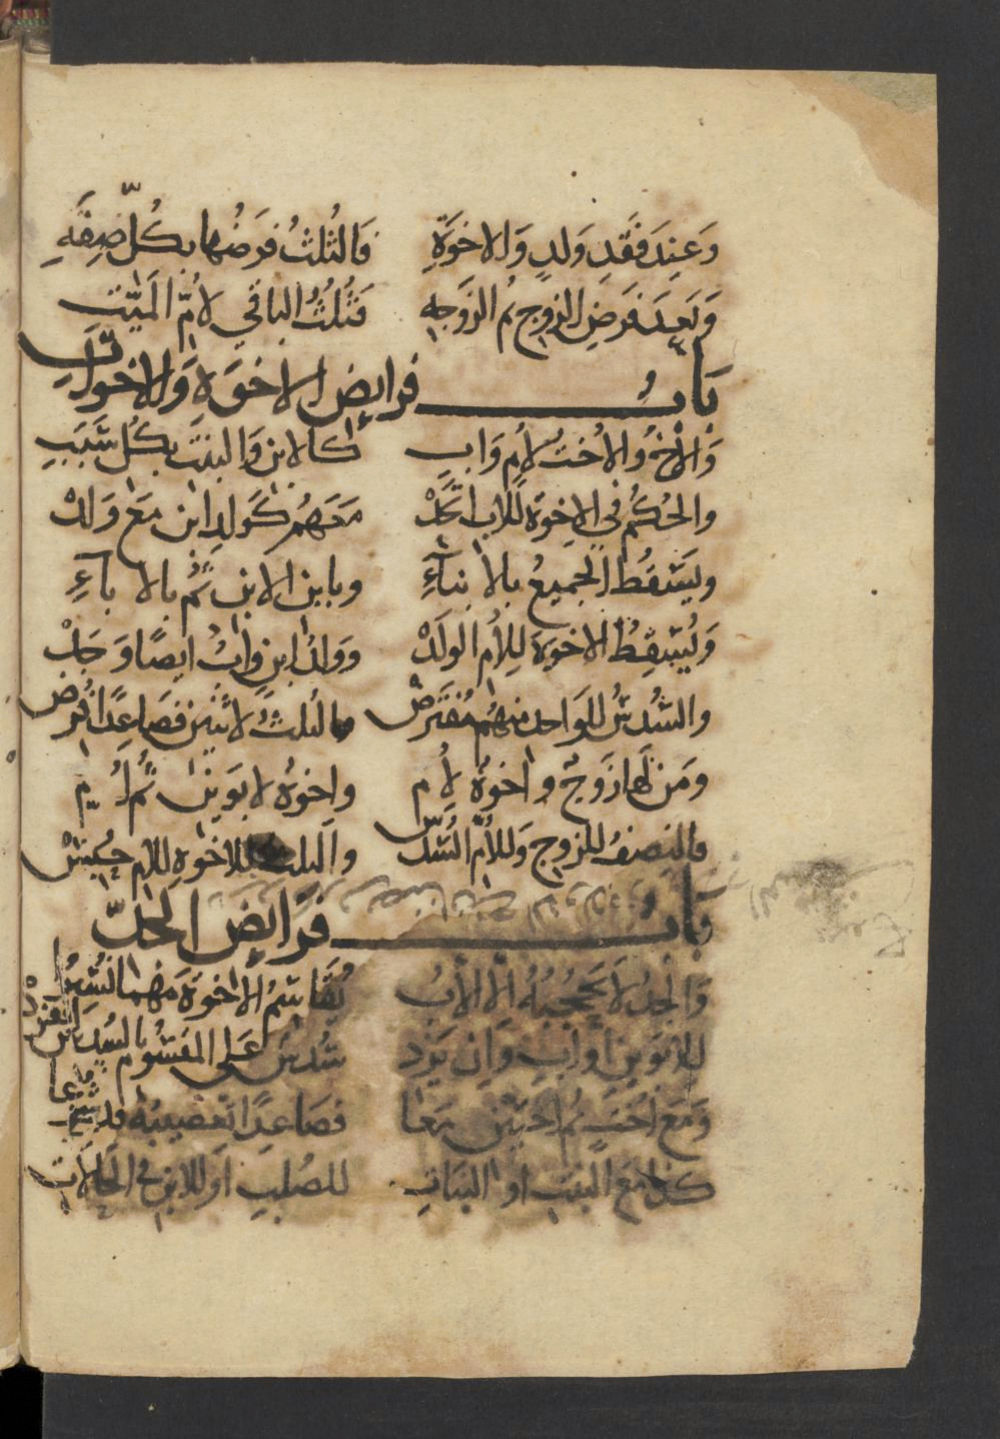 وَعِندَ فَقْدِ وَلدٍ وَالاخوَةِ فَالثُلثُ فَرَضُها بكُلّ صِفَةِ
وَبَعدَ فَرَضِ الزوج ثم الزوَجه فثُلثُ الباقي لاُمّ المَيّت
بَابُ فرايض الاخوَة وَالاخوَات
وَالاخُ والاُختُ لاُم وَاب كالابن وَالبنت بكل سَبَبِ
والحُكمُ في الاخوَة للاب اتحَدْ مَعَهُم كوَلدِ ابن مَعَ وَلدْ
ويَسْقُطُ الجميعُ بالابناءِ وبابن الابن ثُم بالاباءِ
وَيُسْقِطُ الاخوَة لِلاُم الولَدْ وَوَلدُ ابن وابٌ ايضًا وَجَدْ
والسُدسُ للوَاحد منهُم مُفتَرضْ والثلثُ لاثنين فصَاعدًا فُرضْ
ومَن لهَا زَوجٌ واخوَةٌ لاُم واخوَةٌ لابوين ثُم اُم
فالنِصفُ للزوج وَللاُمّ السُدسْ والثلث للاخوة للام حُبِسْ
بَابُ فرَايض الجَدّ
وَالجدُ لا يَحجُبُهُ الا الابُ يُقَاسِمُ الاخوَة
للابوين او اب وان يَزد سُدسٌ عَلى المَقسُوم بالسُدس انفردْ
وَمَع اُخت ثم اُختين مَعَا فصَاعدًا تعصيبُهُ
كذا مَع البنت او البنات للصُلب او للابن في الحَالات